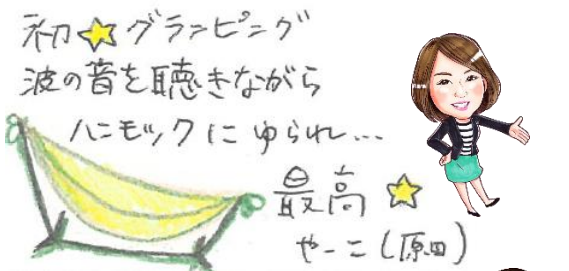 初⭐グランピング
波の音を聴きながら
ハンモックにゆられ...
最高⭐
やーこ(原田)